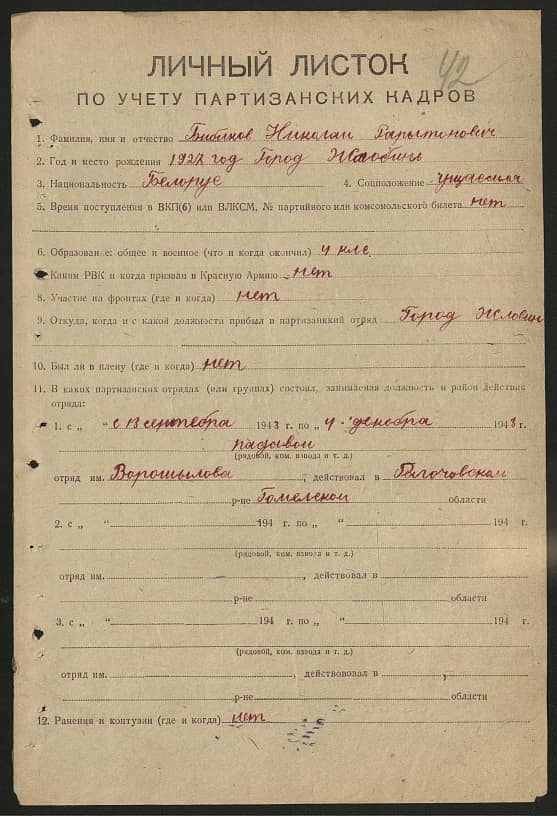 42
ЛИЧНЫЙ ЛИСТОК
ПО УЧЕТУ ПАРТИЗАНСКИХ КАДРОВ
1. Фамилия, имя и отчество Бибиков Николай
2. Год и место рождения 1927 год Город Жлобин
3. Национальность Белорус 4. Соцположение учущиеся
5. Время поступления в ВКП(б) или ВЛКСМ, № партийного или комсомольского билета нет
6. Образование: общее и военное (что и когда окончил) 4 клс
7. Каким РВК и когда призван в Красную Армию нет
8. Участие на фронтах (где и когда) нет
9. Откуда, когда и с какой должности прибыл в партизанкий отряд Город Жлобин
10. Был ли в плену (где и когда) нет
11. В каких партизанских отрядах (или группах) состоял, занимлемая должность и район действия
отряда:
1. с „ “ с 13 сентебра 1943 г. по „ 4 “ декобра 1943 г.
радавой
(рядовой, ком. взвода и т. д.)
отряд им. Ворошылова, действовал в
р-не Гомелской области
2. с „ “ 194 г. по „ “ 194 г.
(рядовой, ком. взвода и т. д.)
отряд им. , действовал в
р-не области
3. с „ “ 194 г. по „ “ 194 г.
(рядовой, ком. взвода и т. д.)
отряд им. , действововал в
р-не области
12. Ранения и контузии (где и когда) нет